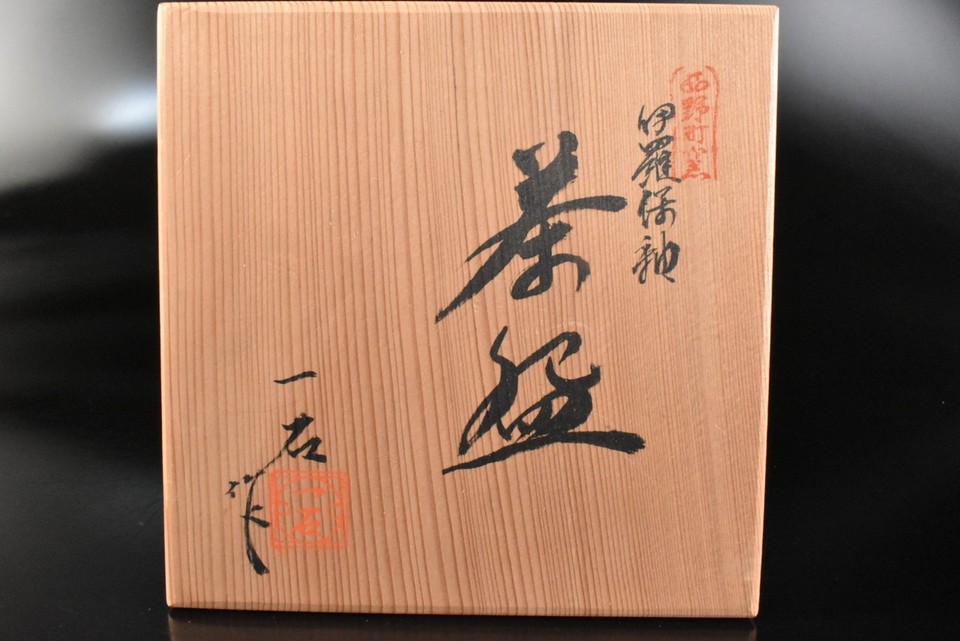 品野町窯
伊羅保釉
茶盌
一石作
一石